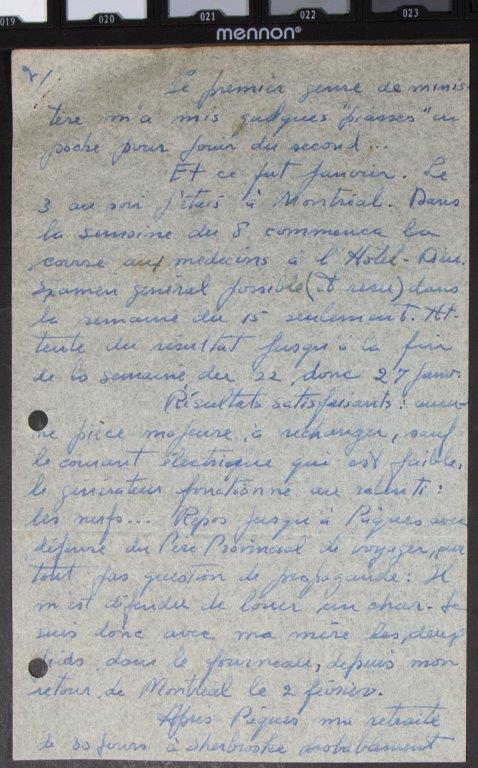 019
020
021
022
023
mennon®
2/
Le premier genre de minis-
tère m'a mis quelques "piasses" en
poche pour jouir du second...
Et ce fut janvier. Le
3 au soir j'étais à Montréal. Dans
la semaine du 8 commença la
course aux médecins à l'Hôtel-Dieu.
Examen général possible (et reçu) dans
la semaine du 15 seulement. At-
tente du résultat jusqu'à la fin
de la semaine du 22, donc 27 janv.
Résultats satisfaisants : aucu-
ne pièce majeure à rechanger, sauf
le courant électrique qui est faible,
le générateur fonctionne au ralenti :
les nerfs... Repos jusqu'à Pâques avec
défense du Père Provincial de voyager, sur
tout pas question de propagande : Il
m'est défendu de louer un char. Je
suis donc avec ma mère les deux
pieds dans le fourneau, depuis mon
retour de Montréal le 2 février.
Après Pâques ma retraite
de 30 jours à Sherbrooke probablement